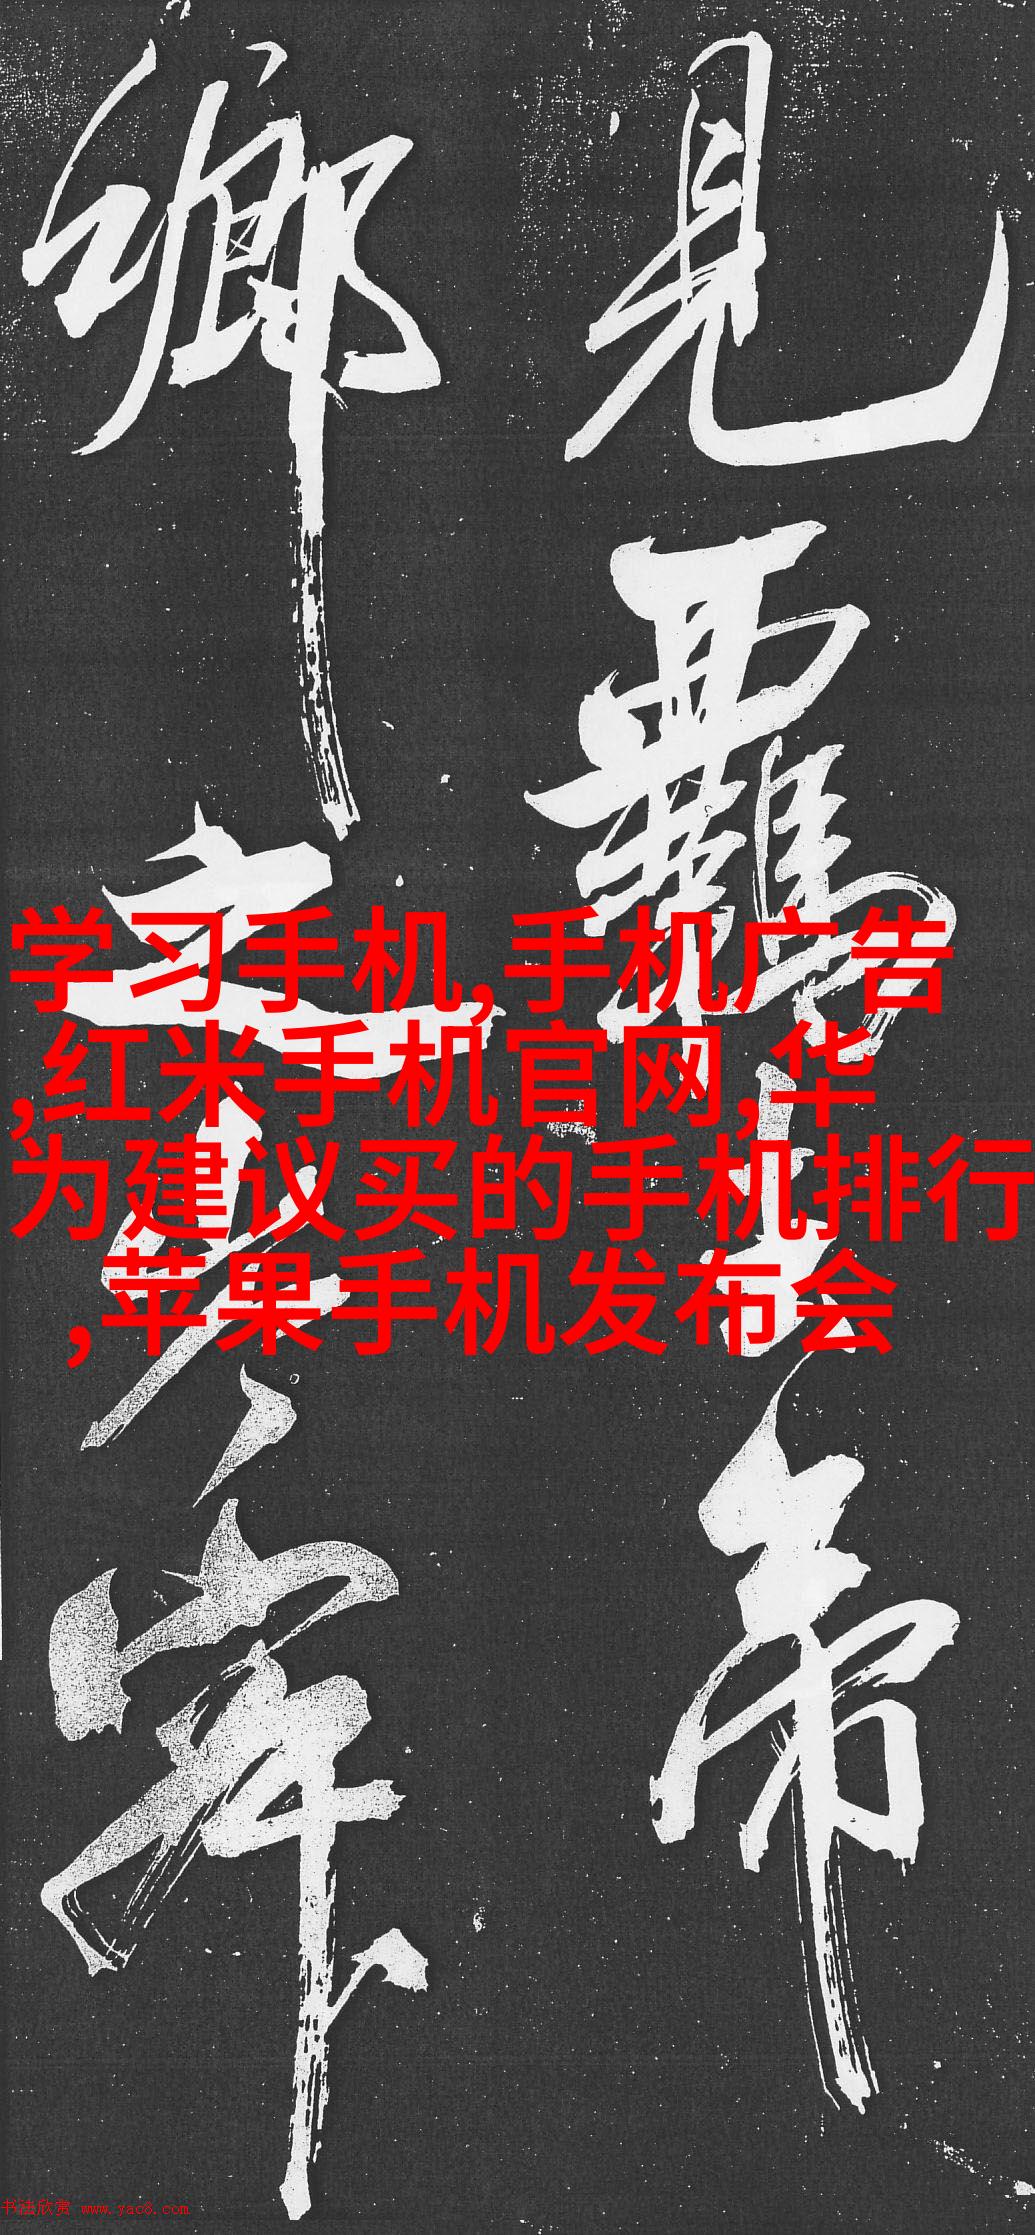 見羈帝
鄉之
学习手机,手机广告
,红米手机官网,华
为建议买的手机排行
,苹果手机发布会
书法欣赏 www.yac8.com